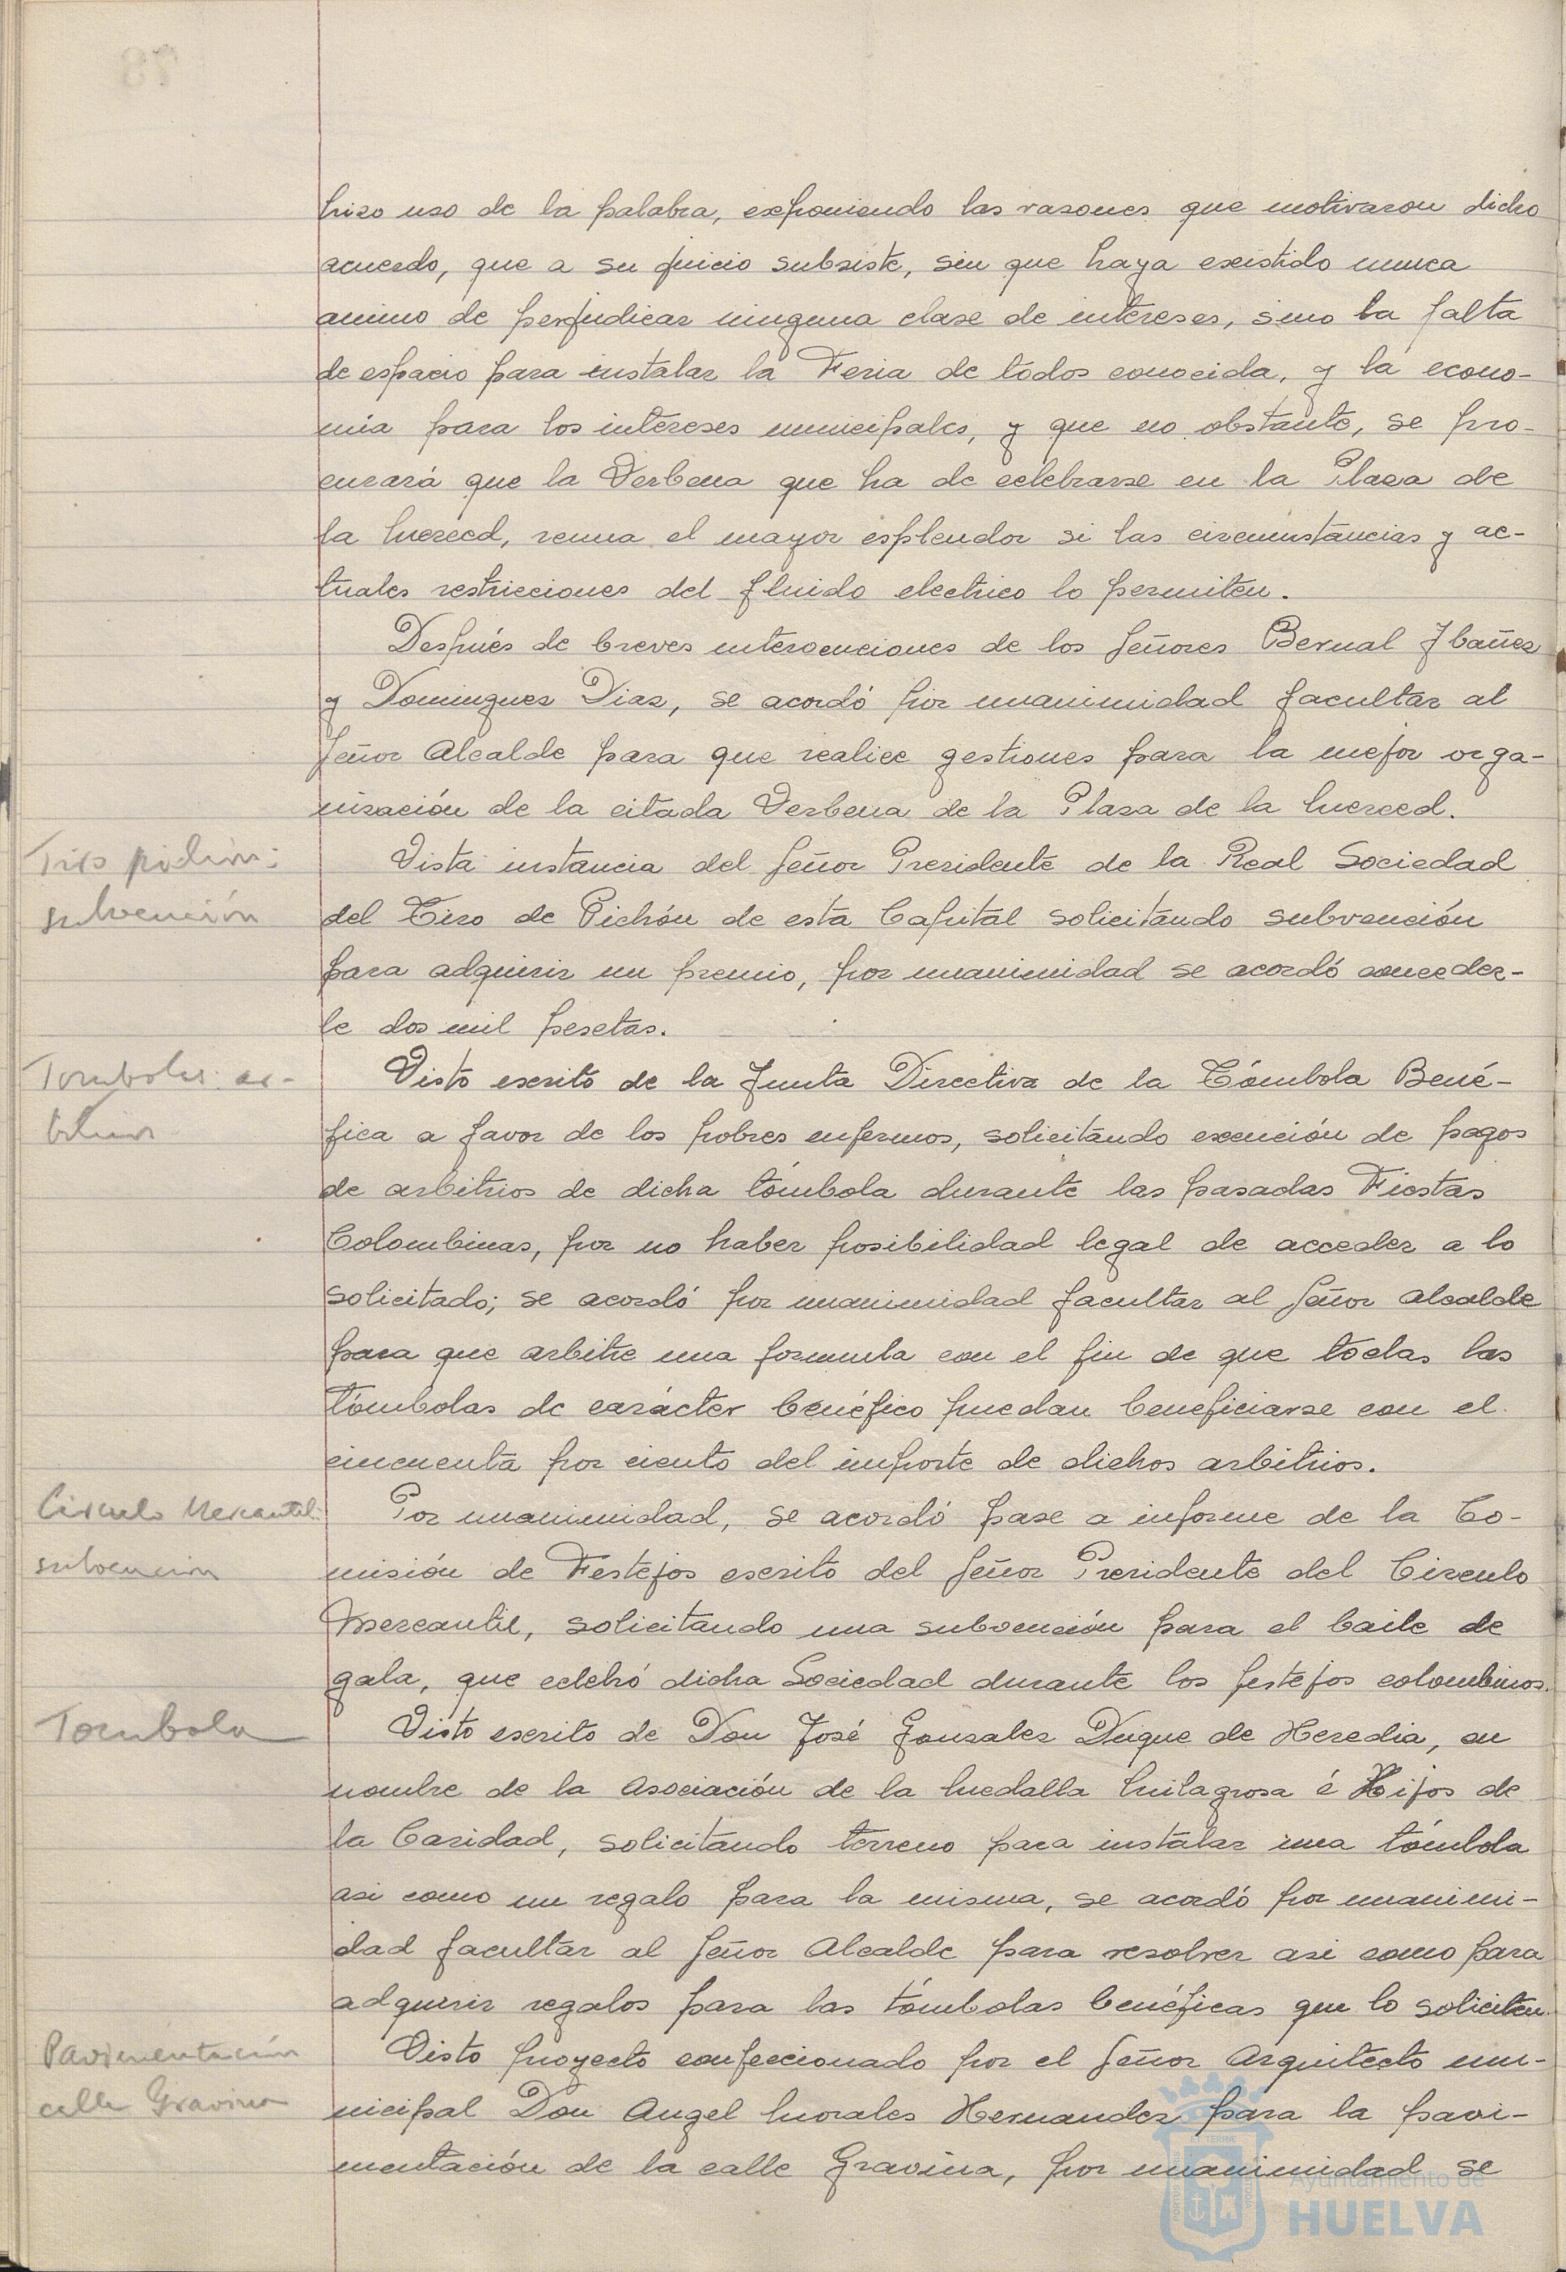 hizo uso de la palabra, exponiendo las razones que motivaron dicho
acuerdo, que a su juicio subsiste, sin que haya existido nunca
animo de perjudicar ninguna clase de intereses, sino la falta
de espacio para instalar la Feria de todos conocida, y la econo-
mia para los intereses municipales, y que no obstante, se pro-
curará que la Verbena que ha de celebrarse en la Plaza de
la Merced, reuna el mayor esplendor si las circunstancias y ac-
tuales restricciones del fluido electrico lo permiten.
Después de breves intervenciones de los Señores Bernal Ibañez
y Dominguez Diaz, se acordó por unanimidad facultar al
Señor Alcalde para que realice gestiones para la mejor orga-
nización de la citada Verbena de la Plaza de la Merced.
Tiro pichón:
subvención
Vista instancia del Señor Presidente de la Real Sociedad
del Tiro de Pichón de esta Capital solicitando subvención
para adquirir un premio, por unanimidad se acordó conceder-
le dos mil pesetas.
Tombolas: ar-
bitrios
Visto escrito de la Junta Directiva de la Tómbola Bené-
fica a favor de los pobres enfermos, solicitando exención de pagos
de arbitrios de dicha tómbola durante las pasadas Fiestas
Colombinas, por no haber posibilidad legal de acceder a lo
solicitado; se acordó por unanimidad facultar al Señor Alcalde
para que arbitre una formula con el fin de que todas las
tómbolas de carácter benéfico puedan beneficiarse con el
cincuenta por ciento del importe de dichos arbitrios.
Circulo Mercantil:
subvencion
Por unanimidad, se acordó pase a informe de la Co-
misión de Festejos escrito del Señor Presidente del Circulo
Mercantil, solicitando una subvención para el baile de
gala, que celebró dicha Sociedad durante los festejos colombinos.
Tombola
Visto escrito de Don José Gonzalez Duque de Heredia, en
nombre de la Asociación de la Medalla Milagrosa é Hijos de
la Caridad, solicitando terreno para instalar una tómbola
asi como un regalo para la misma, se acordó por unanimi-
dad facultar al Señor Alcalde para resolver asi como para
adquirir regalos para las tómbolas benéficas que lo soliciten.
Pavimentación
calle Gravina
Visto proyecto confeccionado por el Señor Arquitecto mu-
nicipal Don Angel Morales Hernandez para la pavi-
mentación de la calle Gravina, por unanimidad se
Ayuntamiento de
HUELVA